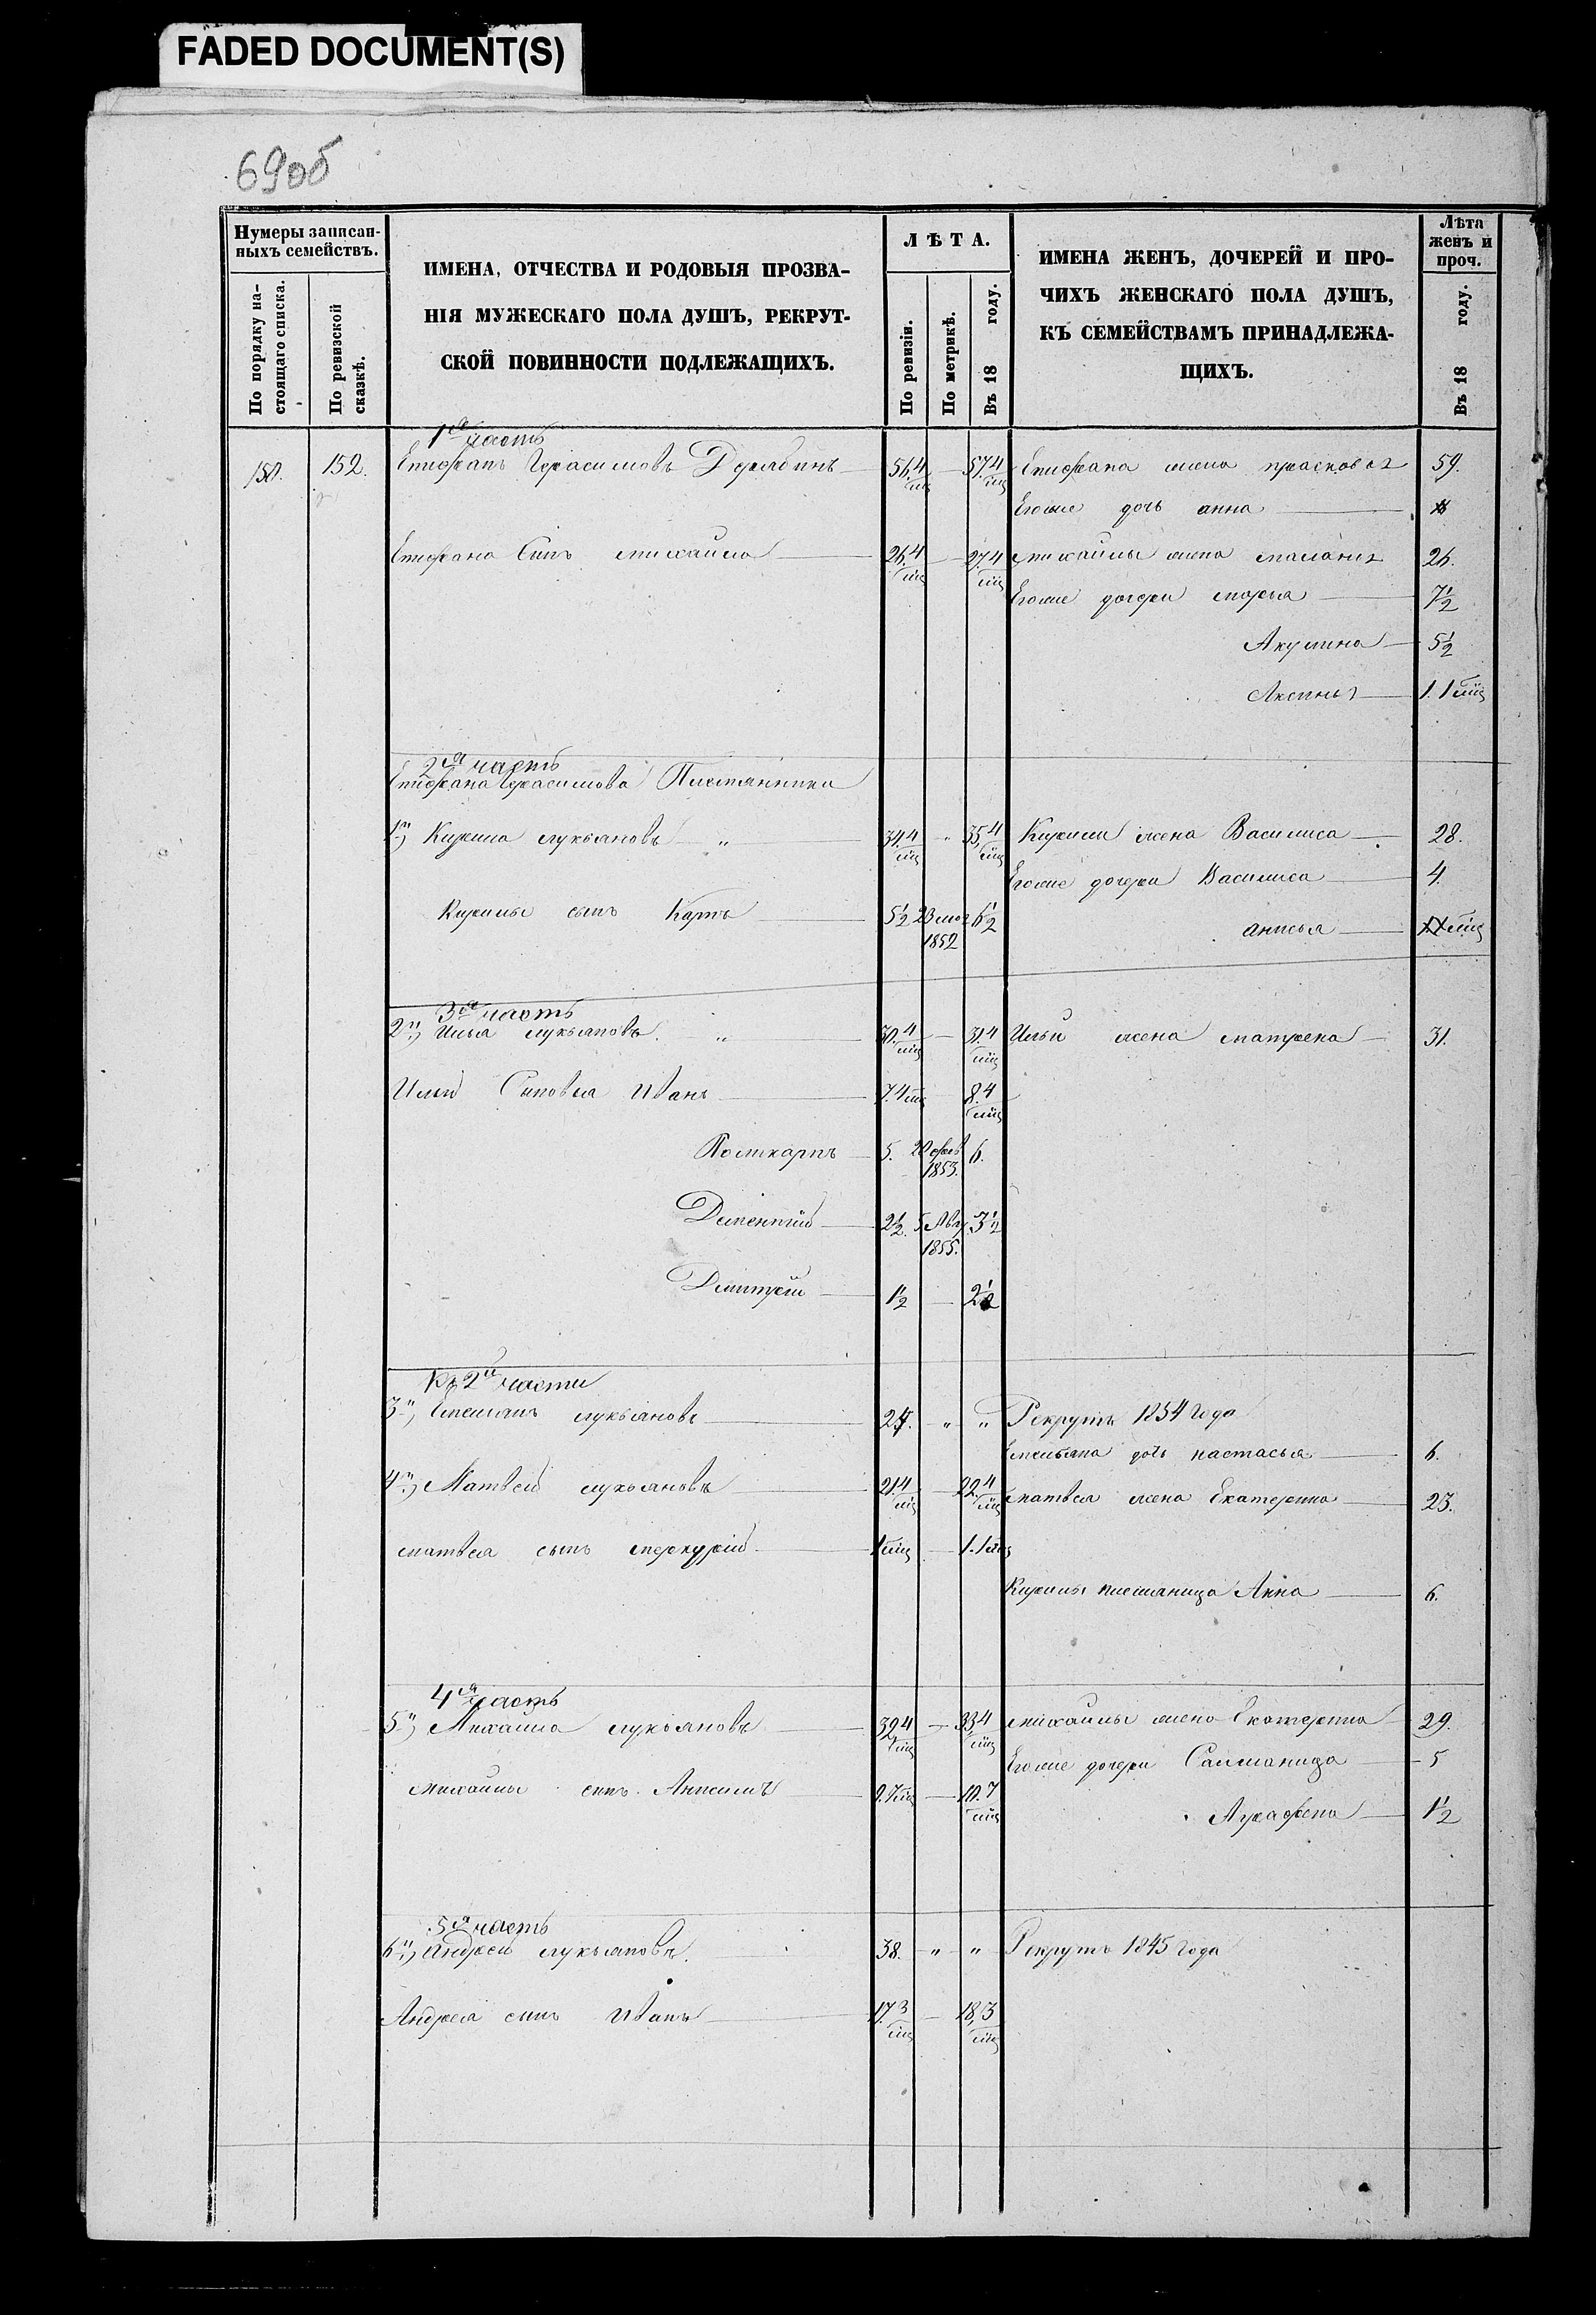 FADED DOCUMENT(S)
69об
Нумеры записан-
ныхъ семействъ.
По порядку на-
стоящаго списка.
По ревизской
сказкѣ.
ИМЕНА, ОТЧЕСТВА И РОДОВЫЯ ПРОЗВА-
НІЯ МУЖЕСКАГО ПОЛА ДУШЪ, РЕКРУТ-
СКОЙ ПОВИННОСТИ ПОДЛЕЖАЩИХЪ.
ЛѢТА.
По ревизіи.
По метрикѣ.
Въ 18 году.
ИМЕНА ЖЕНЪ, ДОЧЕРЕЙ И ПРО-
ЧИХЪ ЖЕНСКАГО ПОЛА ДУШЪ,
КЪ СЕМЕЙСТВАМЪ ПРИНАДЛЕЖА-
ЩИХЪ.
Лѣта
женъ и
проч.
Въ 18 году.
1я часть
150. 152. Епифанъ Герасимовъ Дерябинъ 56.4 мц — 57.4 мц Епифана жена прасковья 59.
Егоже дочь анна
Епифана Сынъ михаила 26.4 мц — 27.4 мц михаилы жена маланья 26.
Егоже дочери марья 7½
Акулина 5½
Аксинья 1.1 мц
2я часть
Епифана Герасимова Племянники
1й) Кирила лукьяновъ „ 34.4 мц „ 35.4 мц Кирилы жена Василиса 28.
Егоже дочери Василиса 4.
Кирилы сынъ Карпъ 5½ 23 мая 1852 6½ анисья
3я часть
2й) Илья лукьяновъ „ 30.4 мц — 31.4 мц Ильи жена матрена 31.
Ильи Сыновья Иванъ 7.4 мц 8.4 мц
Поликарпъ 5. 20 фев 1853. 6.
Дементий 2½. 5 Авг. 1855. 3½
Дмитрей 1½ — 2½
Къ 2й части
3й) Емельянъ лукьяновъ 27. „ „ Рекрутъ 1854 года
Емельяна дочь настасья 6.
4й) Матвей лукьяновъ 21.4 мц — 22.4 мц матвея жена Екатерина 23.
матвея сынъ меркурий 1 мц — 1.1 мц
Кирилы племяница Анна 6.
4я часть
5й) Михаила лукьяновъ 32.4 мц — 33.4 мц михаилы жена Екатерина 29.
Егоже дочери Саломанида 5
михаилы сынъ Анисимъ 9.7 мц — 10.7 мц
Аграфена 1½
5я часть
6й) Андрей лукьяновъ 38. „ „ Рекрутъ 1845 года
Андрея сынъ Иванъ 17.3 мц — 18.3 мц